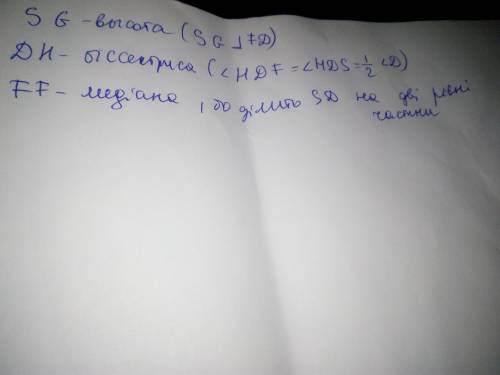 SG - высота (SG ⊥ FD)
DH - биссектриса (∠HDF = ∠HDS = 1/2 ∠D)
FF - медіана, бо ділить SD на дві рівні
частини